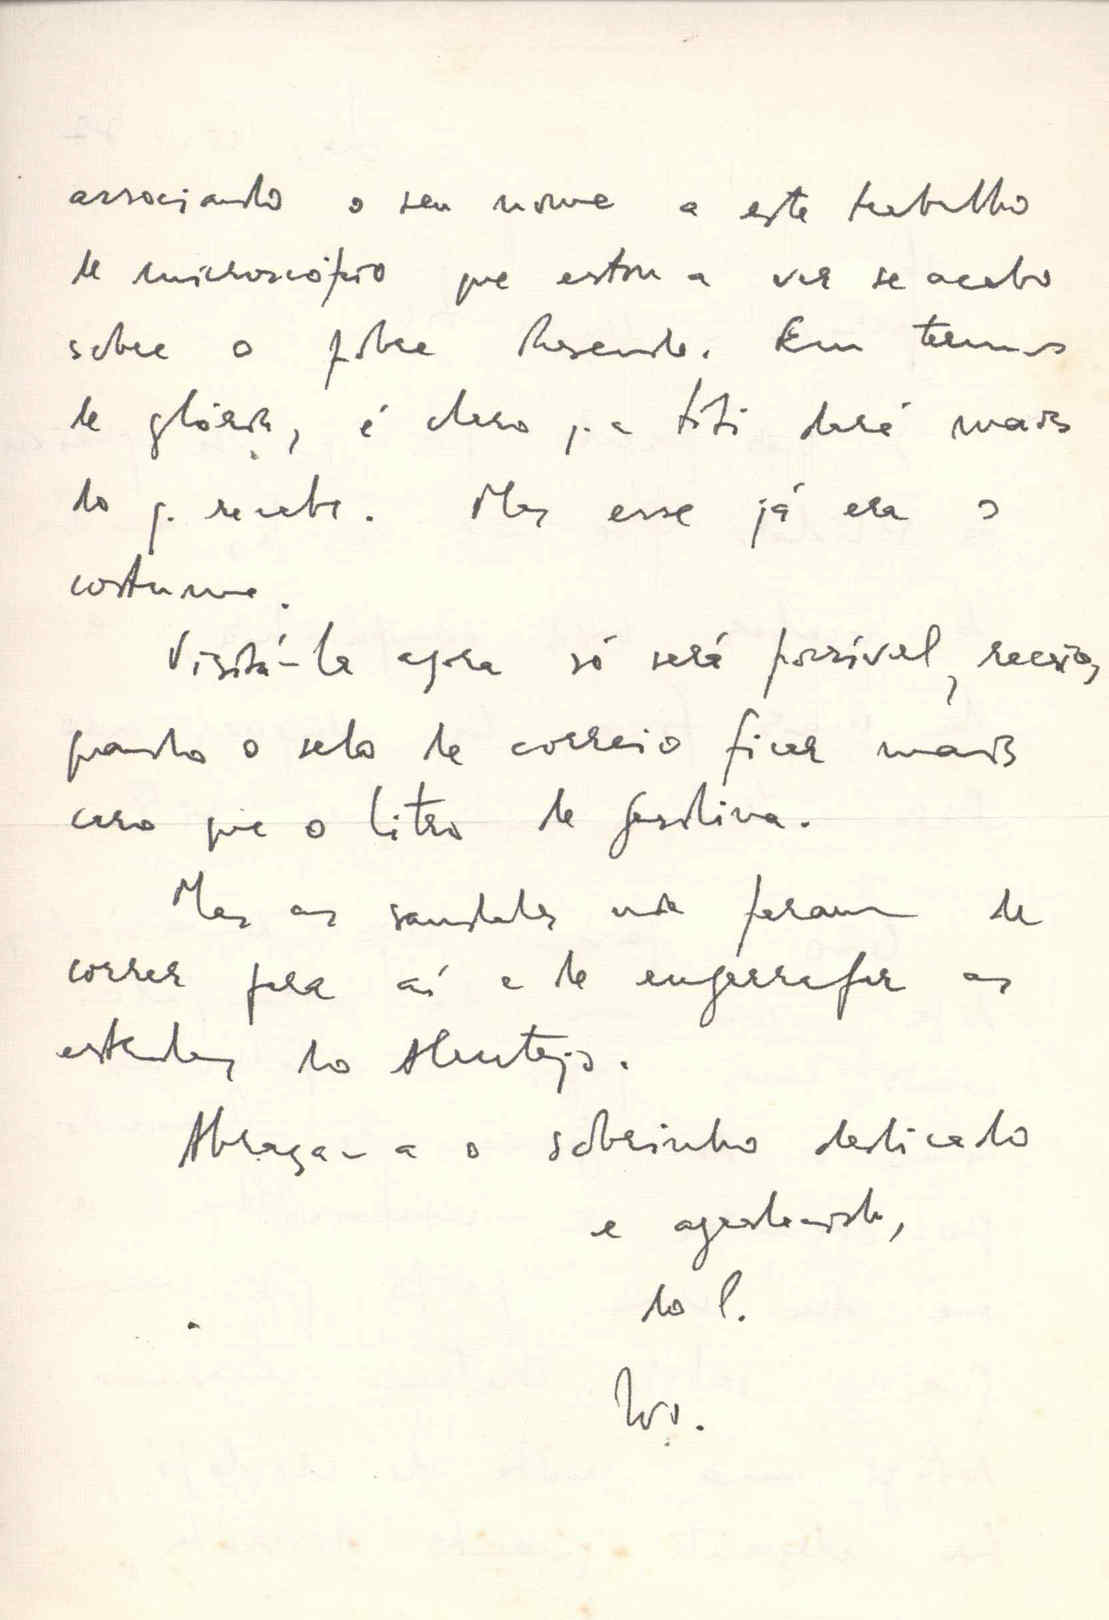 associando o seu nome a este trabalho
de microscópio que estou a ver se acabo
sobre o pobre Resende. Em termos
de glória, é claro q. a titi dará mais
do q. recebe. Mas esse já era o
costume.
Visitá-la agora só será possível, receio,
quando o selo de correio ficar mais
caro que o litro de gasolina.
Mas as saudades não param de
correr para aí e de engarrafar as
estradas do Alentejo.
Abraça-a o sobrinho dedicado
e agradecido,
do C.